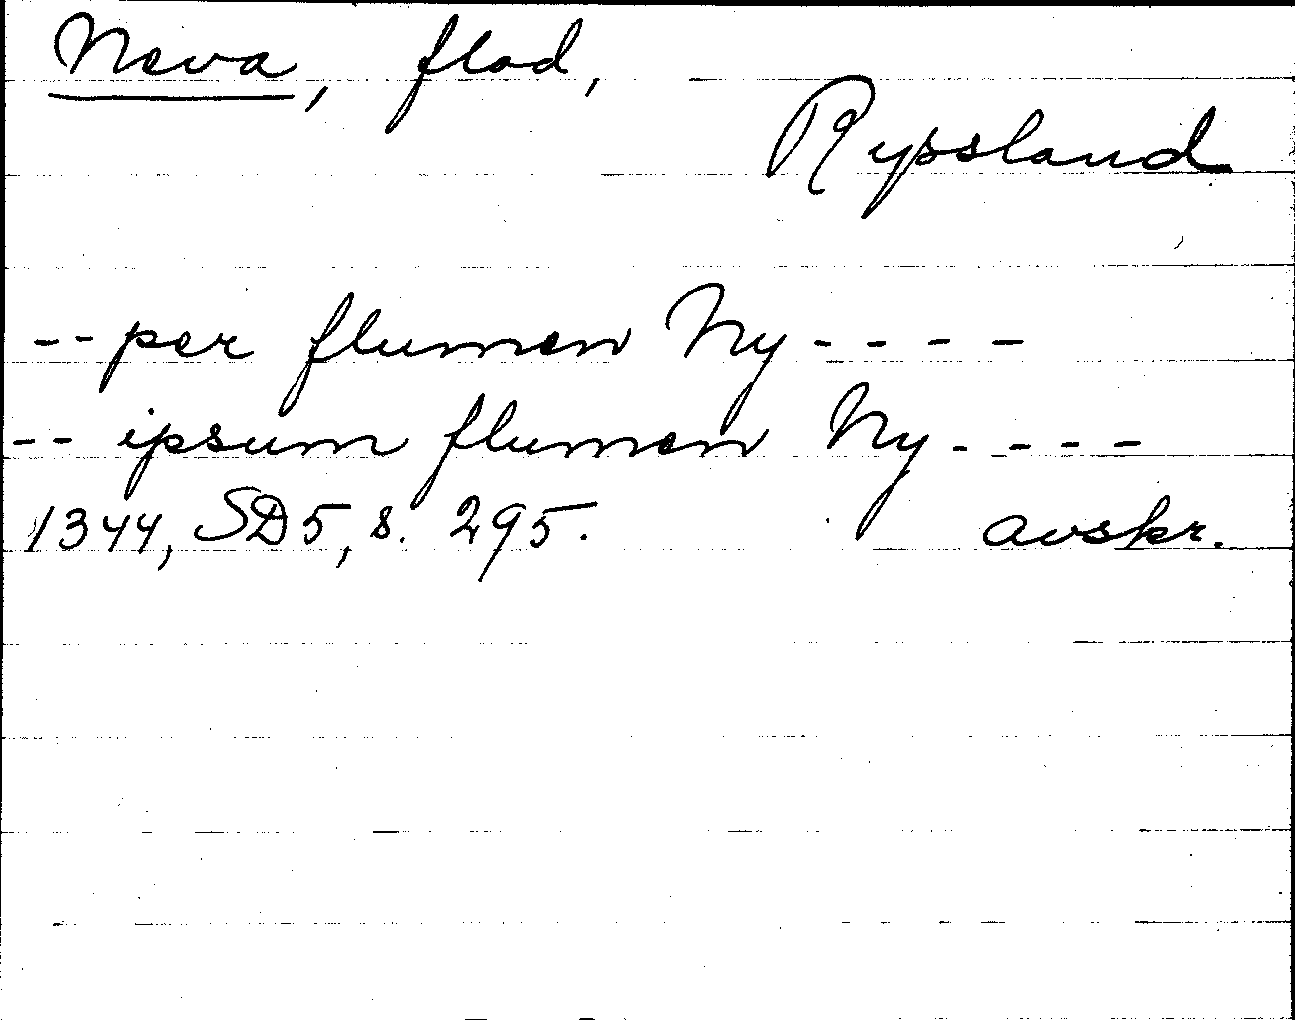 Neva, flod,
Ryssland
-- per flumen Ny ----
-- ipsum flumen Ny ----
1344, SD5, s. 295. avskr.